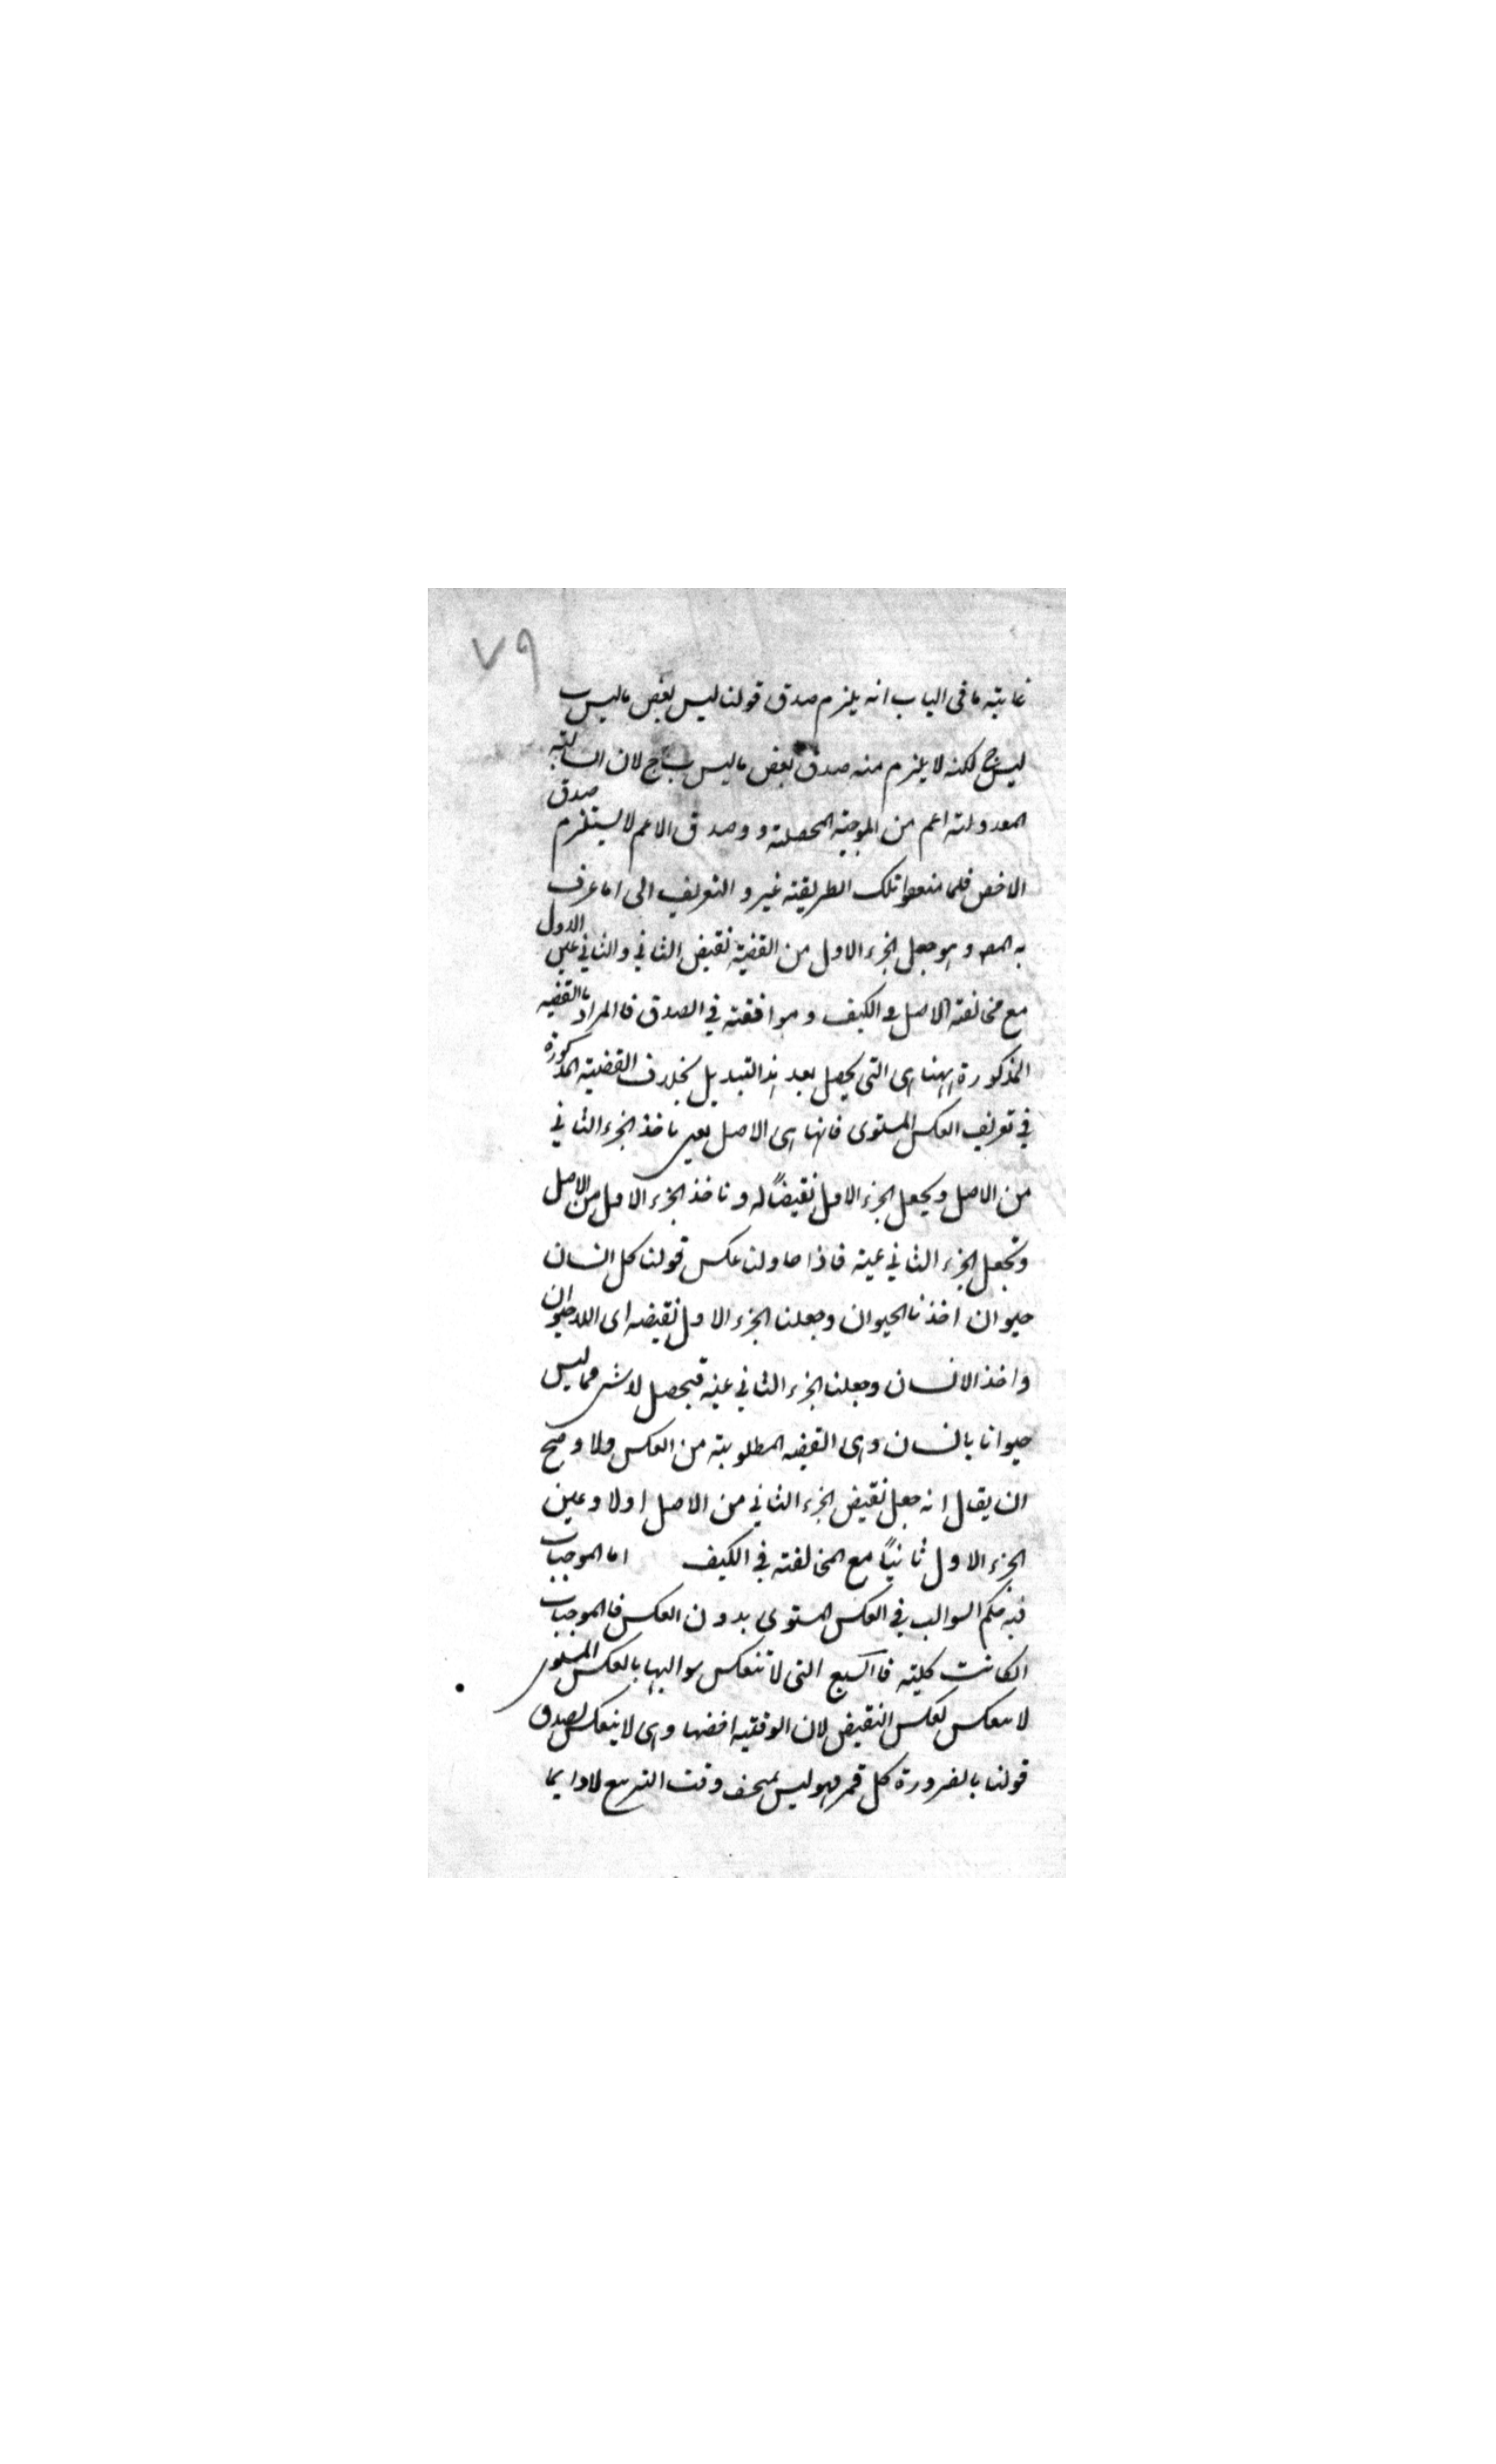 ٧٩
غايته ما في الباب انه يلزم صدق قولنا ليس بعض ما ليس ب
ليس ج لكنه لا يلزم منه صدق بعض ما ليس ب ج لان السالبة
المعدولته اعم من الموجبته المحصلته و وصدق الاعم لا يستلزم صدق
الاخص فلما منعوا تلك الطريقته غيروا التعريف الى ما عرف
به المص وهو جعل الجزء الاول من القضيته نقيض الثاني والثاني عين الاول
مع مخالفته الاصل في الكيف وموافقته في الصدق فالمراد بالقضيه
المذكورة ههنا هى التى يحصل بعد هذا التبديل بخلاف القضيته المذكورة
في تعريف العكس المستوى فانها هى الاصل يعنى ناخذ الجزء الثاني
من الاصل ويجعل الجزء الاول نقيضًا له وناخذ الجزء الاول من الاصل
وتجعل الجزء الثاني عينه فاذا حاولنا عكس قولنا كل انسان
حيوان اخذنا الحيوان وجعلنا الجزء الاول نقيضه اى اللاحيوان
واخذ الانسان وجعلنا الجزء الثاني عينه فيحصل لا شى مما ليس
حيوانا بانسان وهى القضيه المطلوبته من العكس والاوضح
ان يقال انه جعل نقيض الجزء الثاني من الاصل اولا وعين
الجزء الاول ثانيًا مع المخالفته في الكيف اما الموجبات
فيه حكم السوالب في العكس المستوى بدون العكس فالموجبات
ان كانت كليته فالسبع التى لا تنعكس سوالبها بالعكس المستوى
لا ينعكس بعكس النقيض لان الوقتيه اخصها وهى لا ينعكس لصدق
قولنا بالضرورة كل قمر فهو ليس بمنخسف وقت التربيع لا دايما